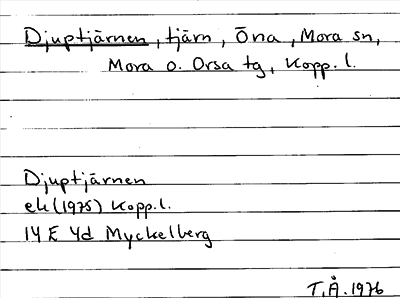 Djuptjärnen, tjärn, Öna, Mora sn,
Mora o. Orsa tg, Kopp. l.
Djuptjärnen
ek (1975) Kopp. l.
14 E 4d Myckelberg
T.Å. 1976